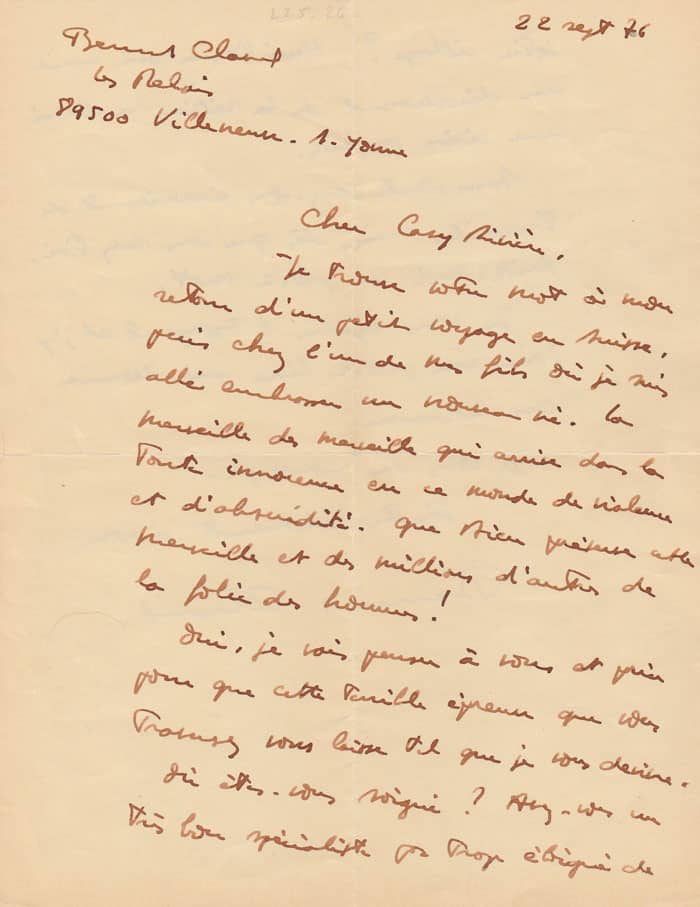 22 sept 76
Bernard Clavel
Les Relais
89500 Villeneuve-s-Yonne
Cher Casy Rivière,
Je trouve votre mot à mon
retour d'un petit voyage en Suisse,
puis chez l'un de mes fils où je suis
allé embrasser un nouveau né. La
merveille des merveille qui arrive dans la
toute innocence en ce monde de violence
et d'absurdité. Que Dieu préserve cette
merveille et des millions d'autres de
la folie des hommes !
Oui, je vais penser à vous et prier
pour que cette terrible épreuve que vous
traversez vous laisse tel que je vous devine.
Où êtes-vous soigné ? Avez-vous un
très bon spécialiste pas trop éloigné de